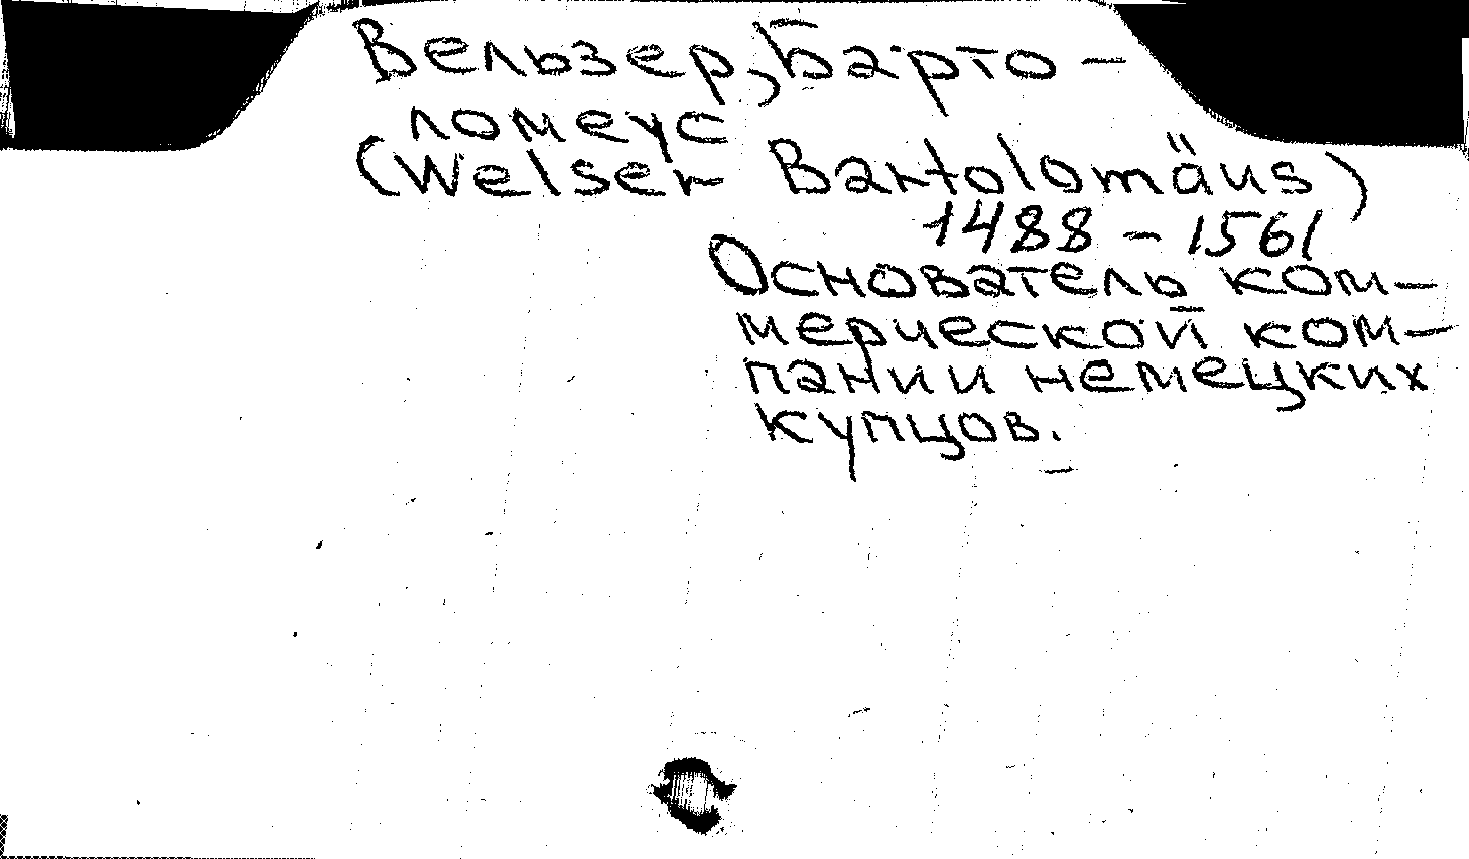 Вельзер, Барто-
ломеус
(Welser Bartolomäus)
1488 - 1561
Основатель ком-
мерческой ком-
пании немецких
купцов.